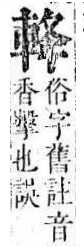 俗字舊註音
香擊也誤